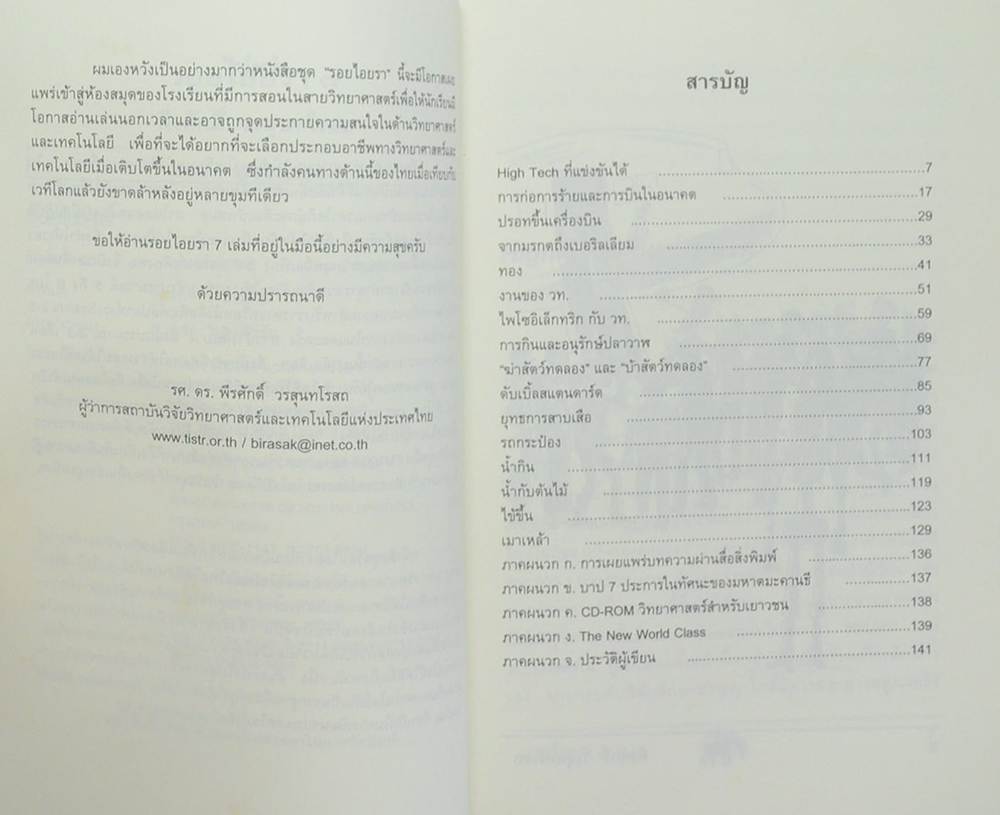 ผมเองหวังเป็นอย่างมากว่าหนังสือชุด "รอยไอยรา" นี้จะมีโอกาสเผย
แพร่เข้าสู่ห้องสมุดของโรงเรียนที่มีการสอนในสายวิทยาศาสตร์เพื่อให้นักเรียนมี
โอกาสอ่านเล่นนอกเวลาและอาจถูกจุดประกายความสนใจในด้านวิทยาศาสตร์
และเทคโนโลยี เพื่อที่จะได้อยากที่จะเลือกประกอบอาชีพทางวิทยาศาสตร์และ
เทคโนโลยีเมื่อเติบโตขึ้นในอนาคต ซึ่งกำลังคนทางด้านนี้ของไทยเมื่อเทียบกับ
เวทีโลกแล้วยังขาดล้าหลังอยู่หลายขุมทีเดียว
ขอให้อ่านรอยไอยรา 7 เล่มที่อยู่ในมือนี้อย่างมีความสุขครับ
ด้วยความปรารถนาดี
รศ. ดร. พีรศักดิ์ วรสุนทโรสถ
ผู้ว่าการสถาบันวิจัยวิทยาศาสตร์และเทคโนโลยีแห่งประเทศไทย
www.tistr.or.th / birasak@inet.co.th
สารบัญ
High Tech ที่แข่งขันได้ ........7
การก่อการร้ายและการบินในอนาคต ........17
ปรอทขึ้นเครื่องบิน ........29
จากมรกตถึงเบอริลเลียม ........33
ทอง ........41
งานของ วท. ........51
ไพโซอิเล็กทริก กับ วท. ........59
การกินและอนุรักษ์ปลาวาฬ ........69
"ฆ่าสัตว์ทดลอง" และ "บ้าสัตว์ทดลอง" ........77
ดับเบิ้ลสแตนดาร์ด ........85
ยุทธการสาบเสือ ........93
รถกระป๋อง ........103
น้ำกิน ........111
น้ำกับต้นไม้ ........119
ไข้ขึ้น ........123
เมาเหล้า ........129
ภาคผนวก ก. การเผยแพร่บทความผ่านสื่อสิ่งพิมพ์ ........136
ภาคผนวก ข. บาป 7 ประการในทัศนะของมหาตมะคานธี ........137
ภาคผนวก ค. CD-ROM วิทยาศาสตร์สำหรับเยาวชน ........138
ภาคผนวก ง. The New World Class ........139
ภาคผนวก จ. ประวัติผู้เขียน ........141